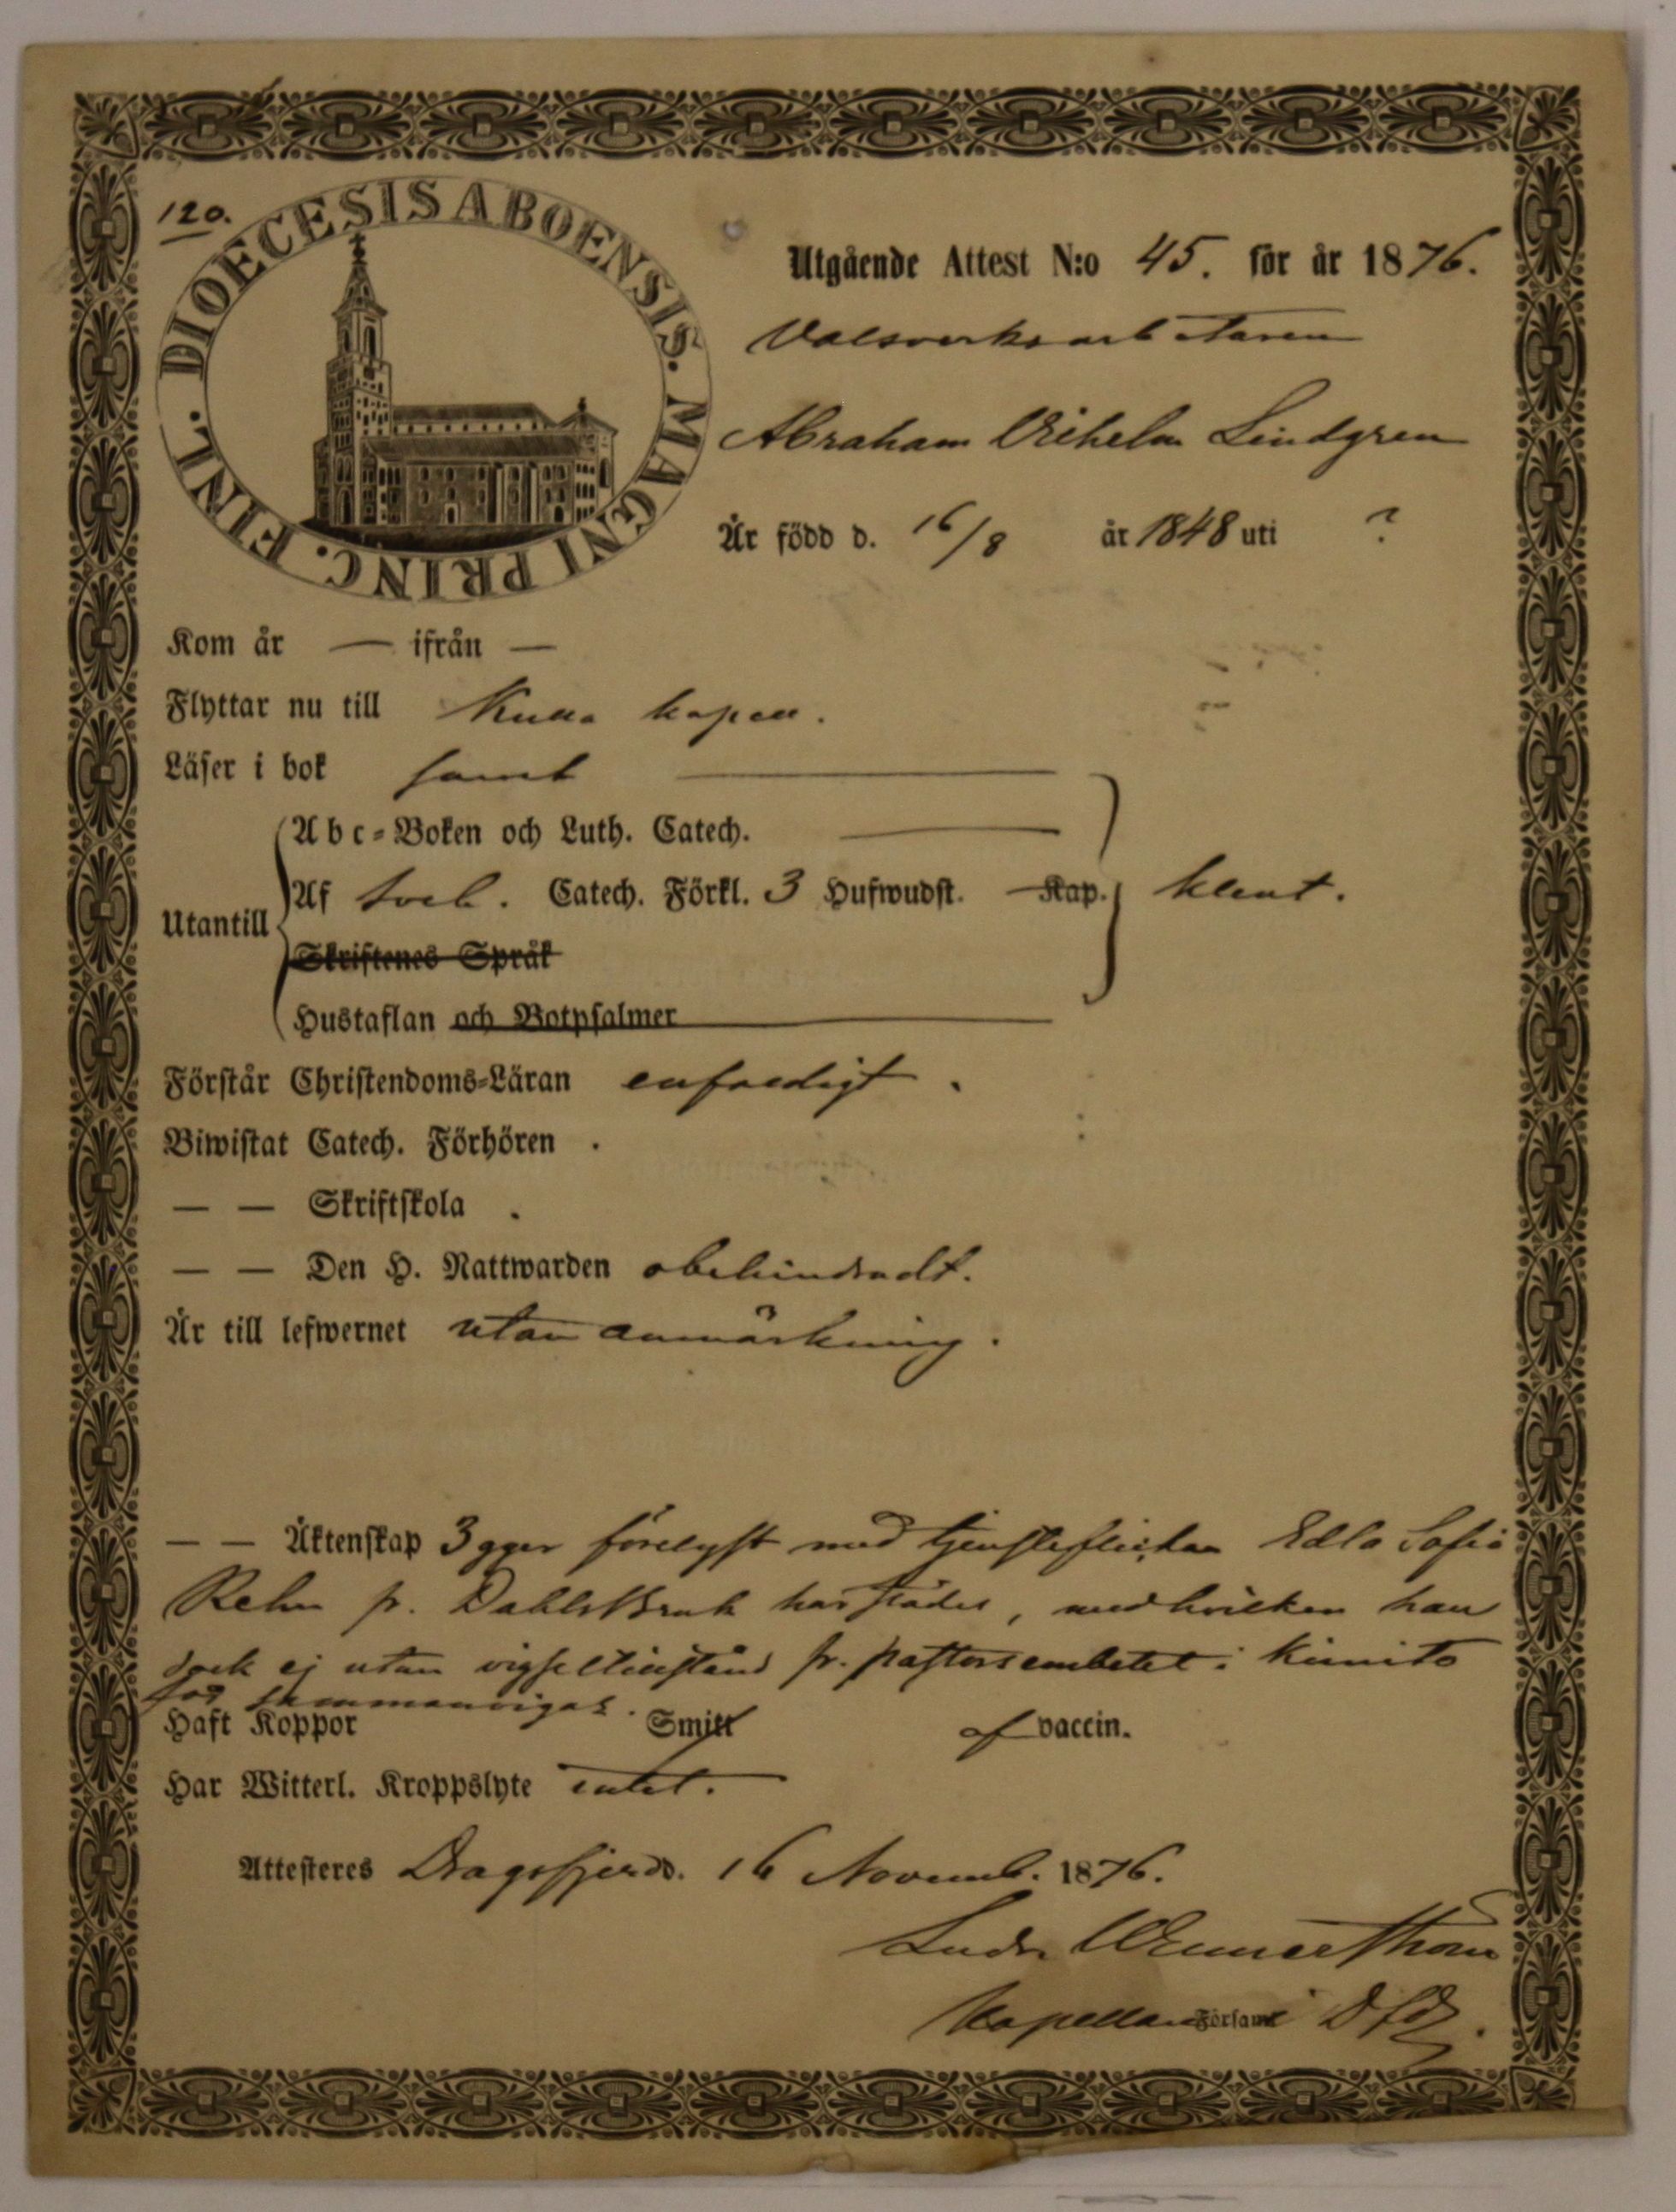 120.
DIOECESIS ABOENSIS. MAGNI PRINC. FINL.
Utgående Attest N:o 45. för år 1876.
Valsverksarbetaren
Abraham Vilhelm Lindgren
Är född d. 16/8 år 1848 uti ?
Kom år — ifrån —
Flyttar nu till kapell.
Läser i bok samt
Abc-Boken och Luth. Catech.
Utantill Af sveb. Catech. Förkl. 3 Hufwudst. — Kap. klent.
Skriftenes Språk
Hustaflan och Botpsalmer
Förstår Christendoms-Läran enfaldigt.
Biwistat Catech. Förhören .
— — Skriftskola .
— — Den H. Nattwarden obehindradt.
Är till lefwernet utan anmärkning.
— — Äktenskap 3 ggr förelyst med tjensteflickan Edla Sofia
Rehn fr. Dahlsbruk härstädes, med hvilken han
dock ej utan vigseltillstånd fr. pastorsembetet i Kimito
får sammanvigas.
Haft Koppor Smitt af vaccin.
Har Witterl. Kroppslyte intet.
Attesteres Dragsfjerd. 16 Novemb. 1876.
Wennerström
Kapellan Församl i Dfd.